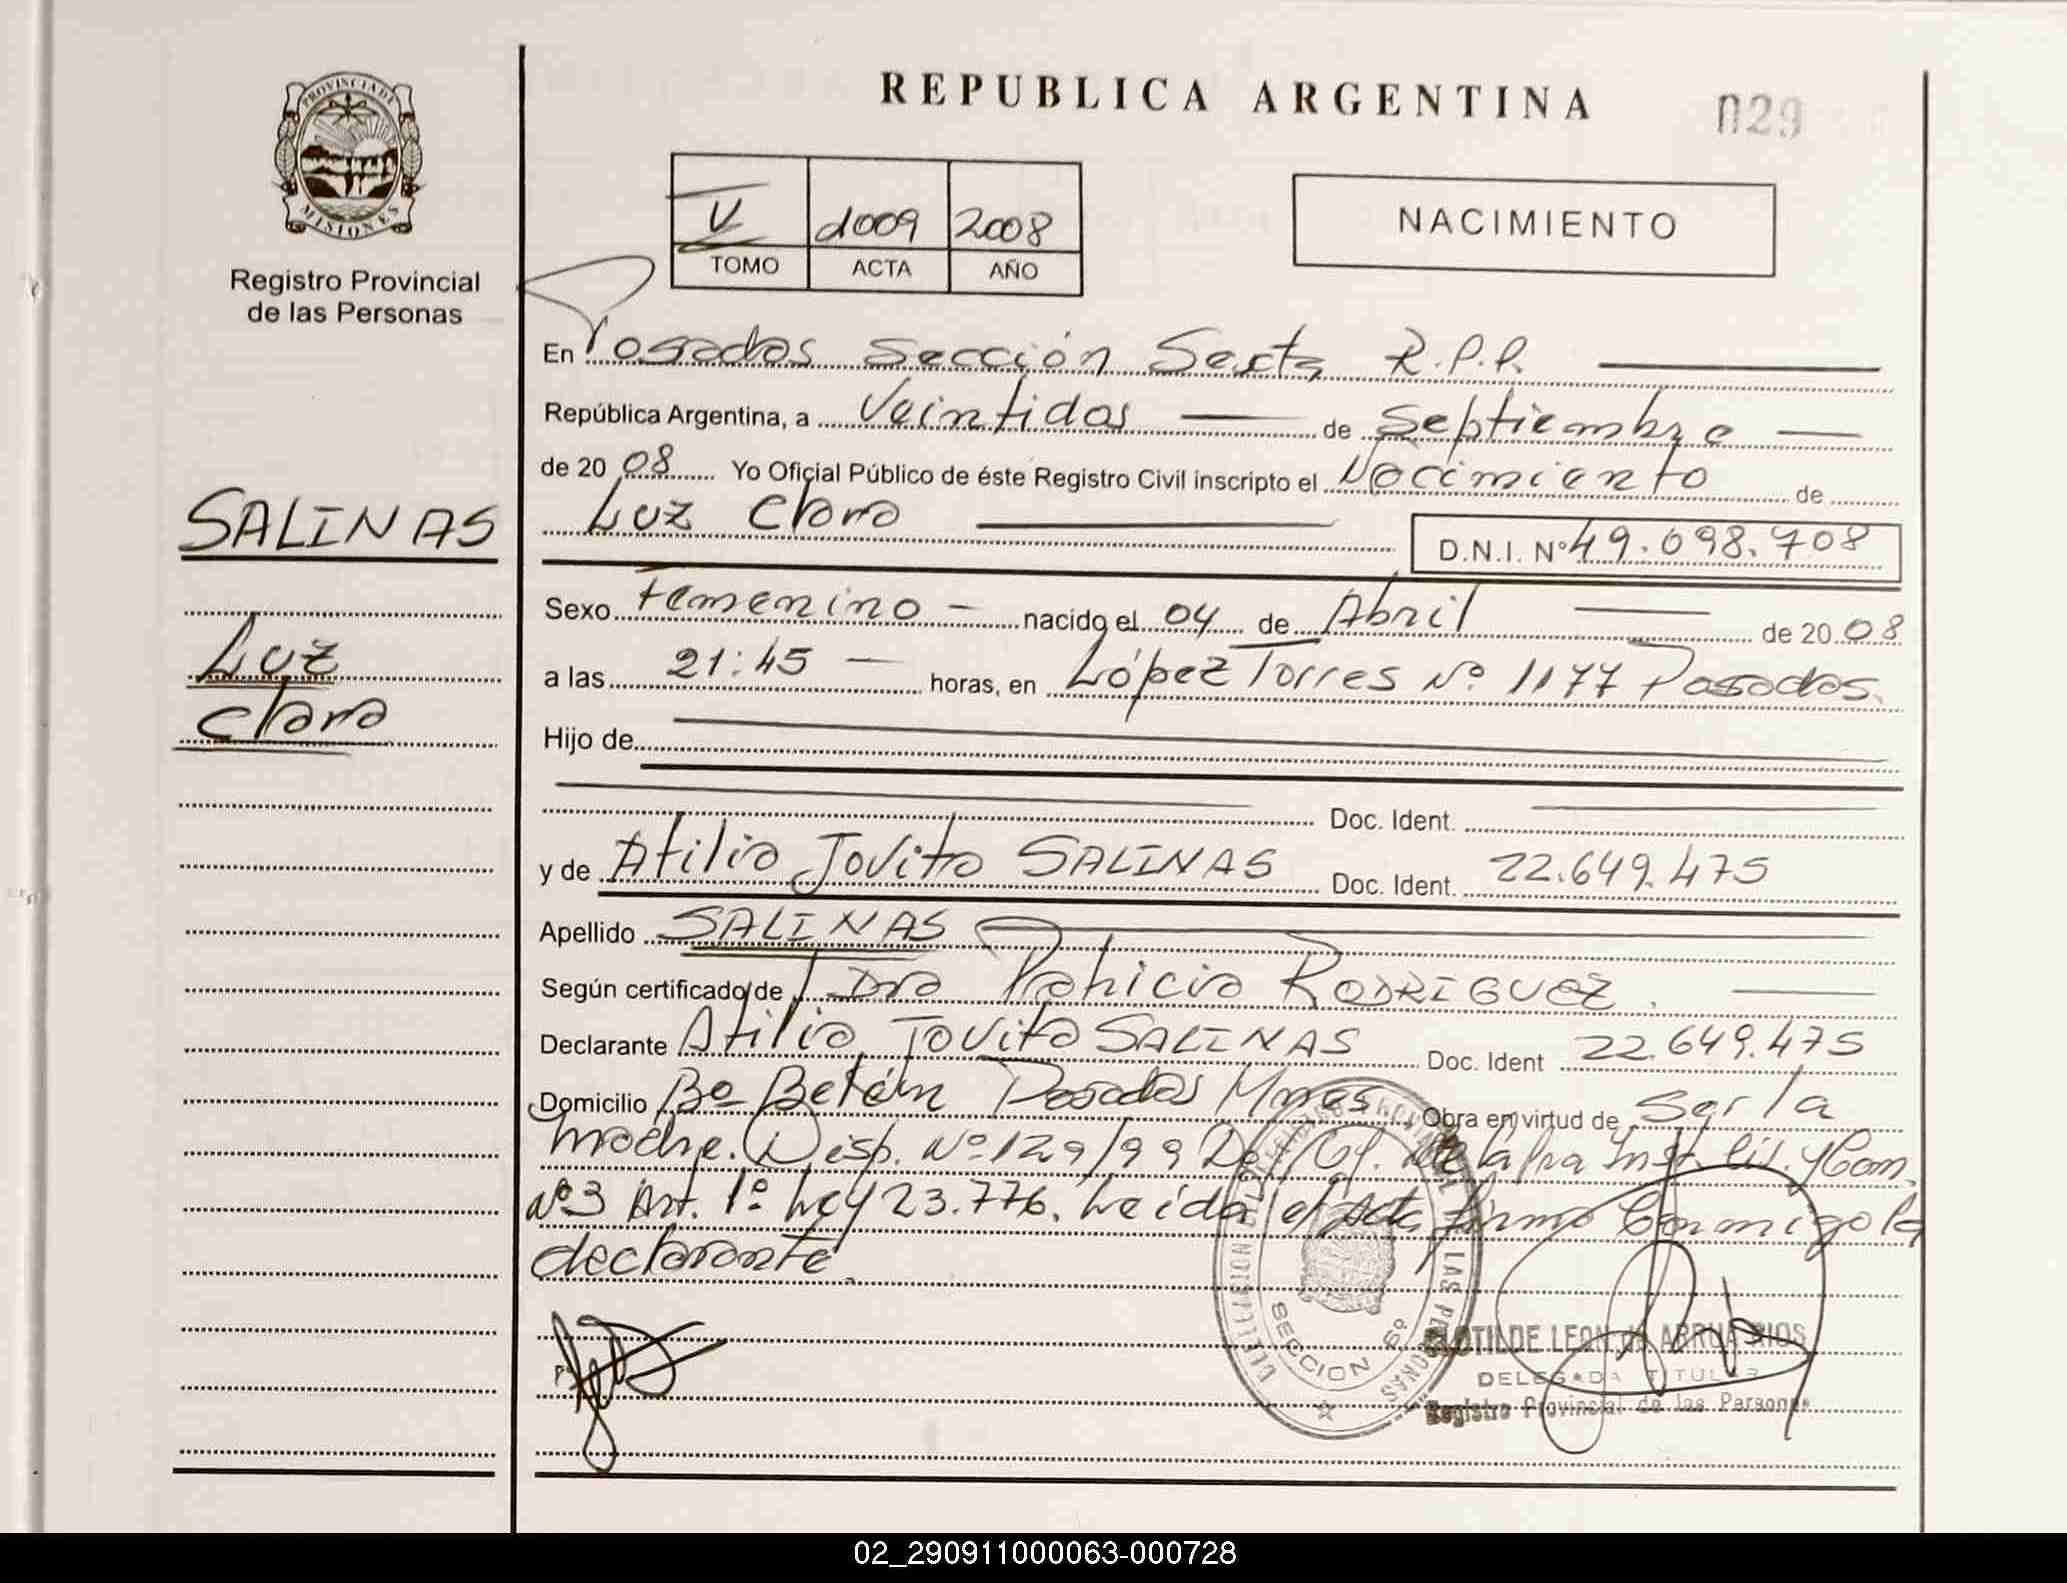 PROVINCIA DE
MISIONES
Registro Provincial
de las Personas
SALINAS
Luz
Clara
REPUBLICA ARGENTINA
029
V 1009 2008
TOMO ACTA AÑO
NACIMIENTO
En Posadas Sección Sexta R.P.P.
República Argentina, a Veintidos de Septiembre
de 20 08 Yo Oficial Público de éste Registro Civil inscripto el Nacimiento de
Luz Clara D.N.I. Nº 49.698.708
Sexo Femenino nacido el 04 de Abril de 20 08
a las 21:45 horas, en López Torres Nº 1177 Posadas.
Hijo de
Doc. Ident.
y de Atilia Jovita SALINAS Doc. Ident. 22.649.475
Apellido SALINAS
Según certificado de Dra Patricia RODRIGUEZ.
Declarante Atilia Jovita SALINAS Doc. Ident 22.649.475
Domicilio Bº Belén Posadas Mnes Obra en virtud de Ser la
madre. Disp. Nº 129/99 De la Inst. Civ. y Com.
Nº3 Art. 1º Ley 23.776. Leida el Acta, firma Conmigo la
declarante.
SECCION 6º
CLOTILDE LEON de ARRUA RIOS
DELEGADA TITULAR
Registro Provincial de las Personas
02_290911000063-000728